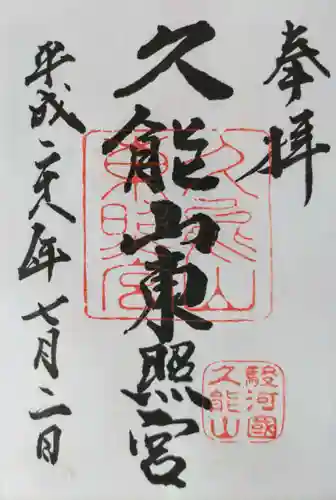 奉拝
久能山東照宮
平成二十八年七月二日
久能山東照宮
駿河國
久能山